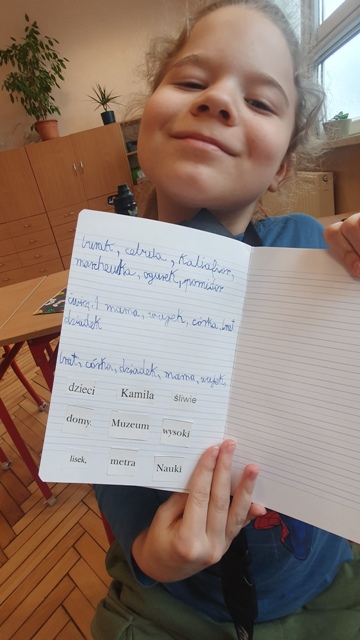 burak, cebula, kalafior,
marchewka, ogórek, pomidor
mama, wujek, córka, brat
dziadek
brat, córka, dziadek, mama, wujek,
dzieci Kamila śliwie
domy. Muzeum wysoki
lisek, metra Nauki